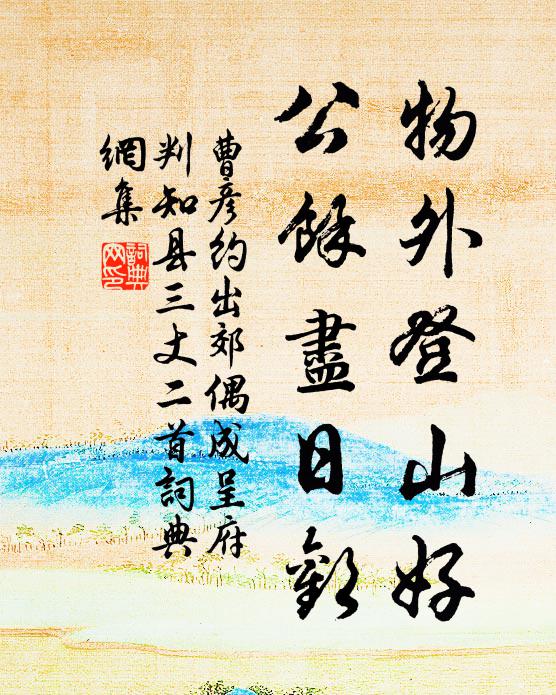 物外登山好
公餘盡日歡
曹彦约出郊偶成呈府
判知县三丈二首詞典
網集
詞典
网印